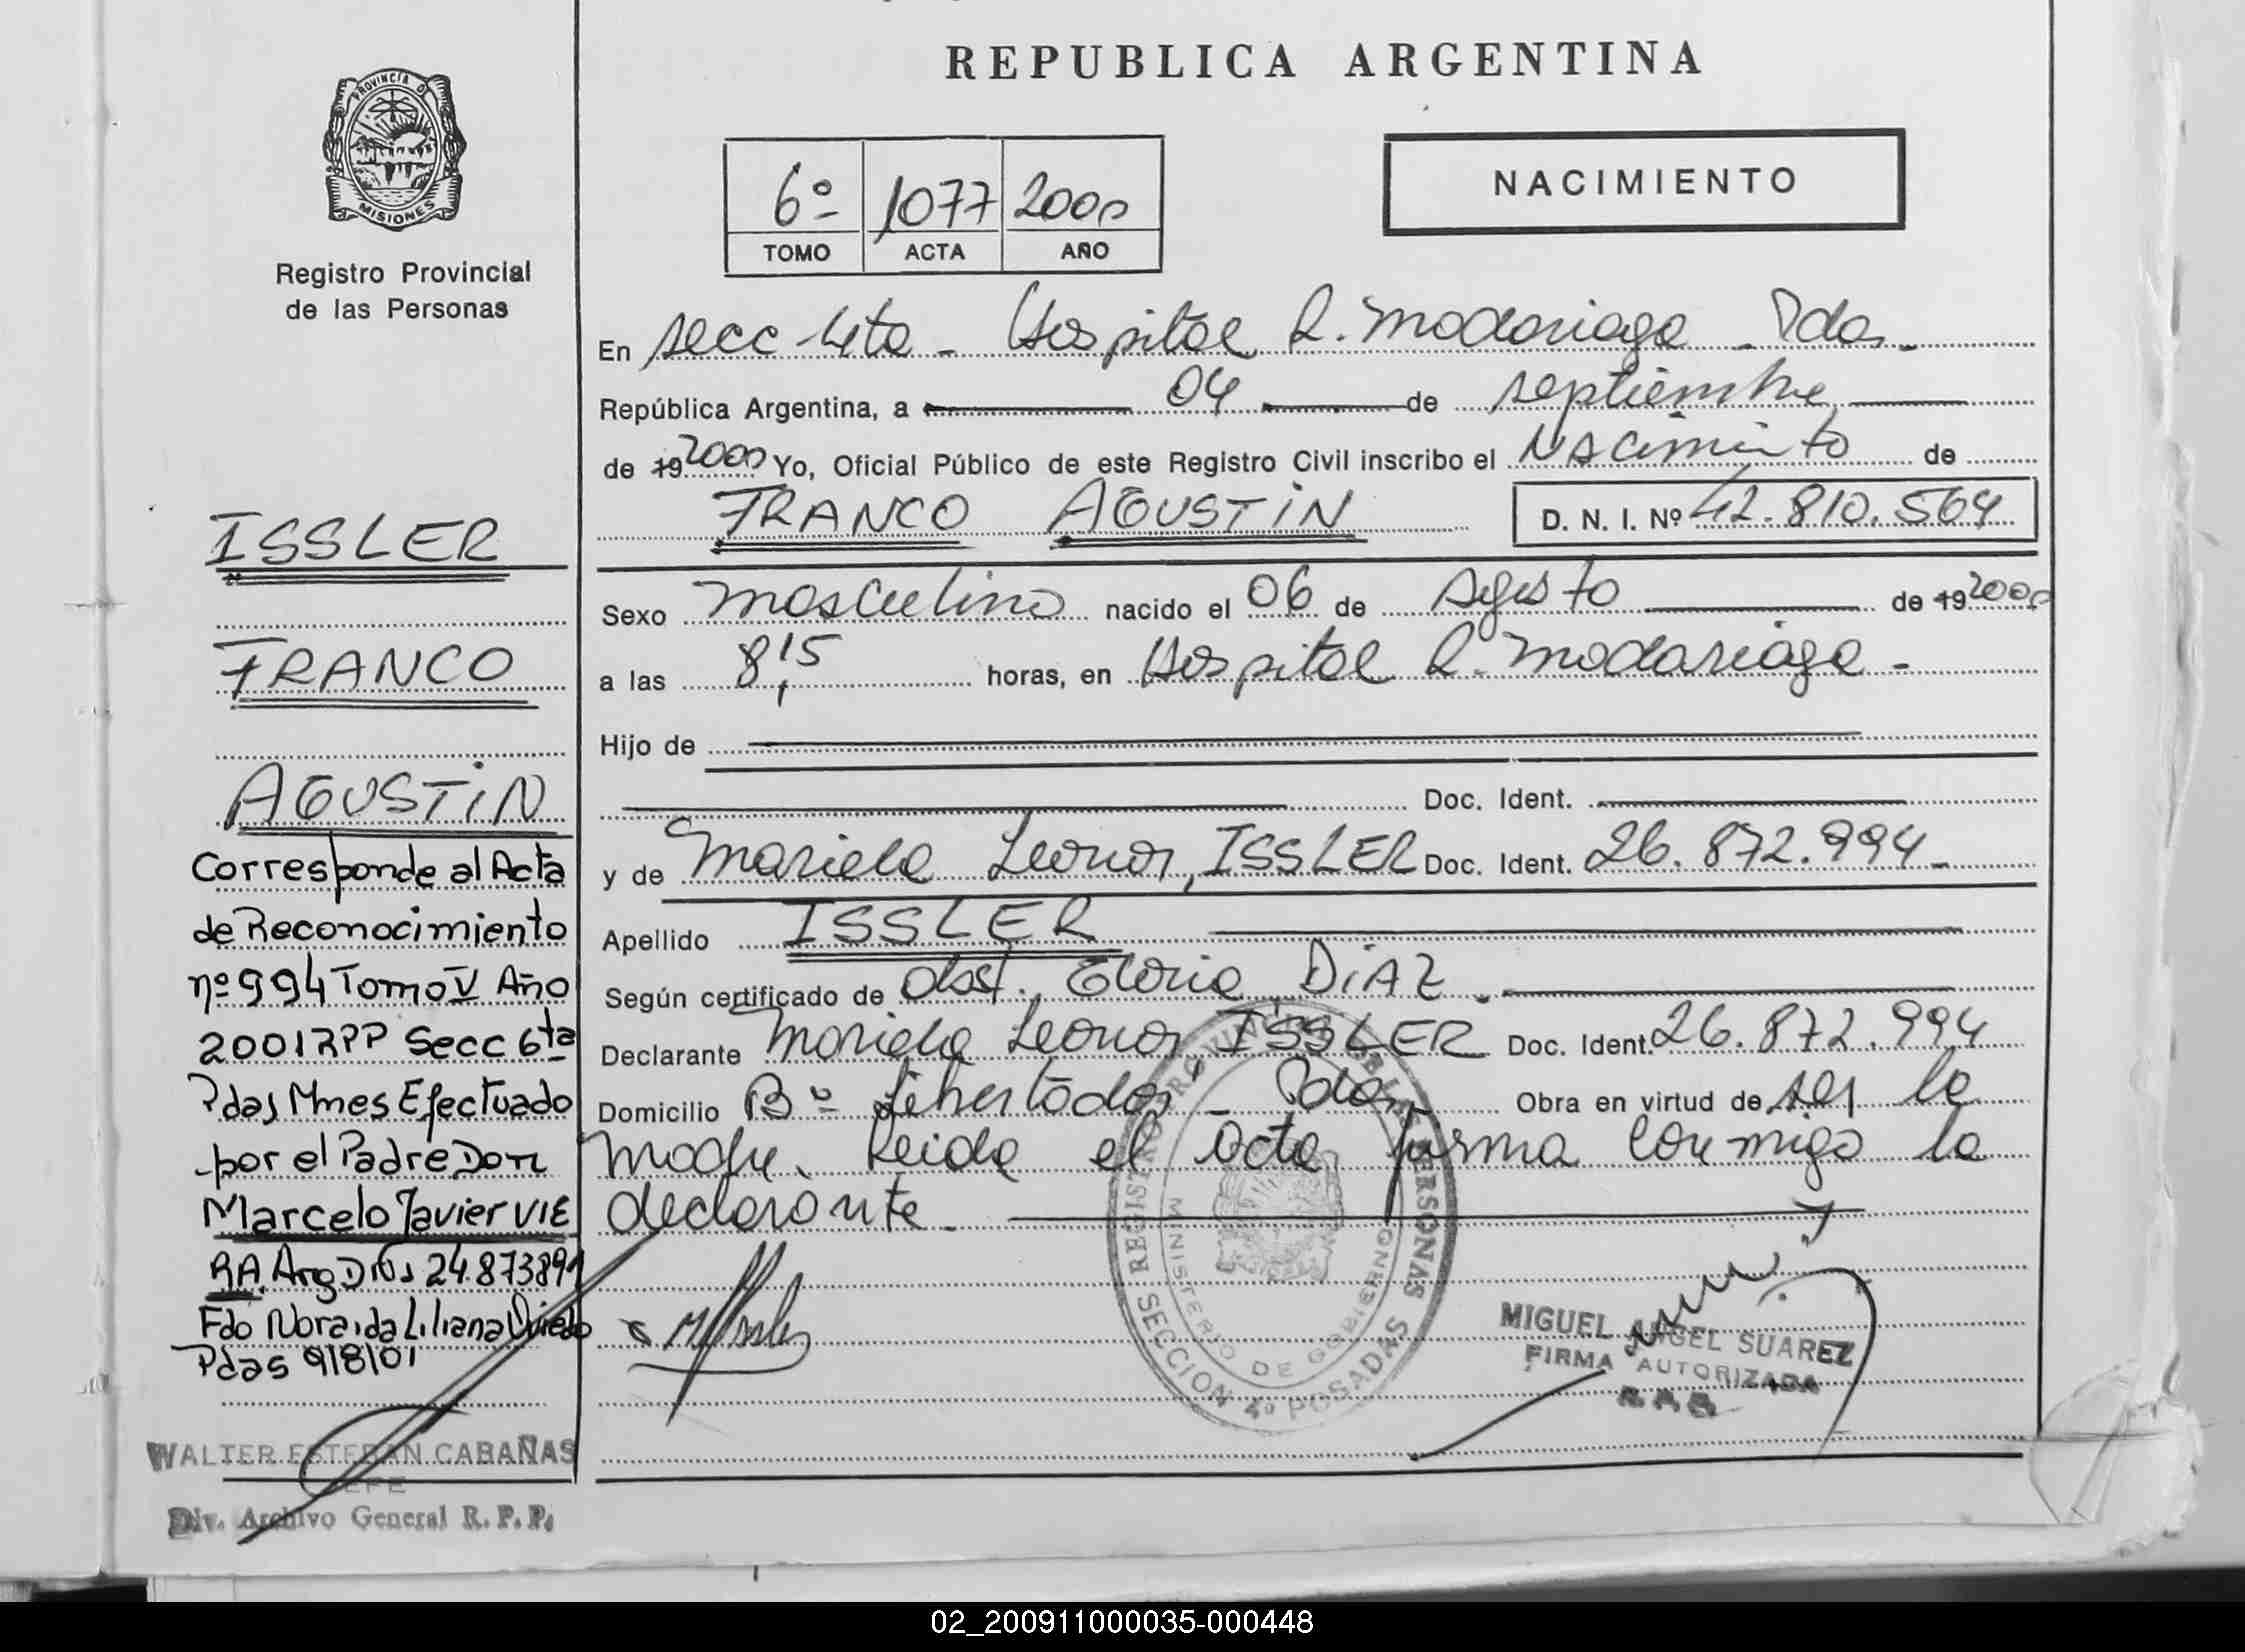 REPUBLICA ARGENTINA
PROVINCIA D
MISIONES
Registro Provincial
de las Personas
6º 1077 2000
TOMO ACTA AÑO
NACIMIENTO
En secc 4ta - Hospital R. Madariaga - Pdas.
República Argentina, a 04 de septiembre
de 19 2000 Yo, Oficial Público de este Registro Civil inscribo el Nacimiento de
FRANCO AGUSTIN D. N. I. Nº 42.810.564
Sexo masculino nacido el 06 de Agosto de 19 2000
a las 8,15 horas, en Hospital R. Madariaga -
Hijo de
Doc. Ident.
y de Mariela Leonor, ISSLER Doc. Ident. 26.872.994-
Apellido ISSLER
Según certificado de obst. Gloria DIAZ.
Declarante Mariela Leonor ISSLER Doc. Ident. 26.872.994
Domicilio Bº Libertador - Pdas. Obra en virtud de ser la
madre. Leida el acta firma conmigo la
declarante.
MIGUEL ANGEL SUAREZ
FIRMA AUTORIZADA
REGISTRO PROVINCIAL DE LAS PERSONAS
MINISTERIO DE GOBIERNO
SECCION 4º POSADAS
ISSLER
FRANCO
AGUSTIN
Corresponde al Acta
de Reconocimiento
nº 994 Tomo V Año
2001 RPP Secc 6ta
Pdas Mnes Efectuado
por el Padre Don
Marcelo Javier VIE
RA. Arg
Fdo Noraida Liliana Oviedo
Pdas 9/8/01
WALTER ESTEBAN CABAÑAS
JEFE
Div. Archivo General R. P. P.
02_200911000035-000448